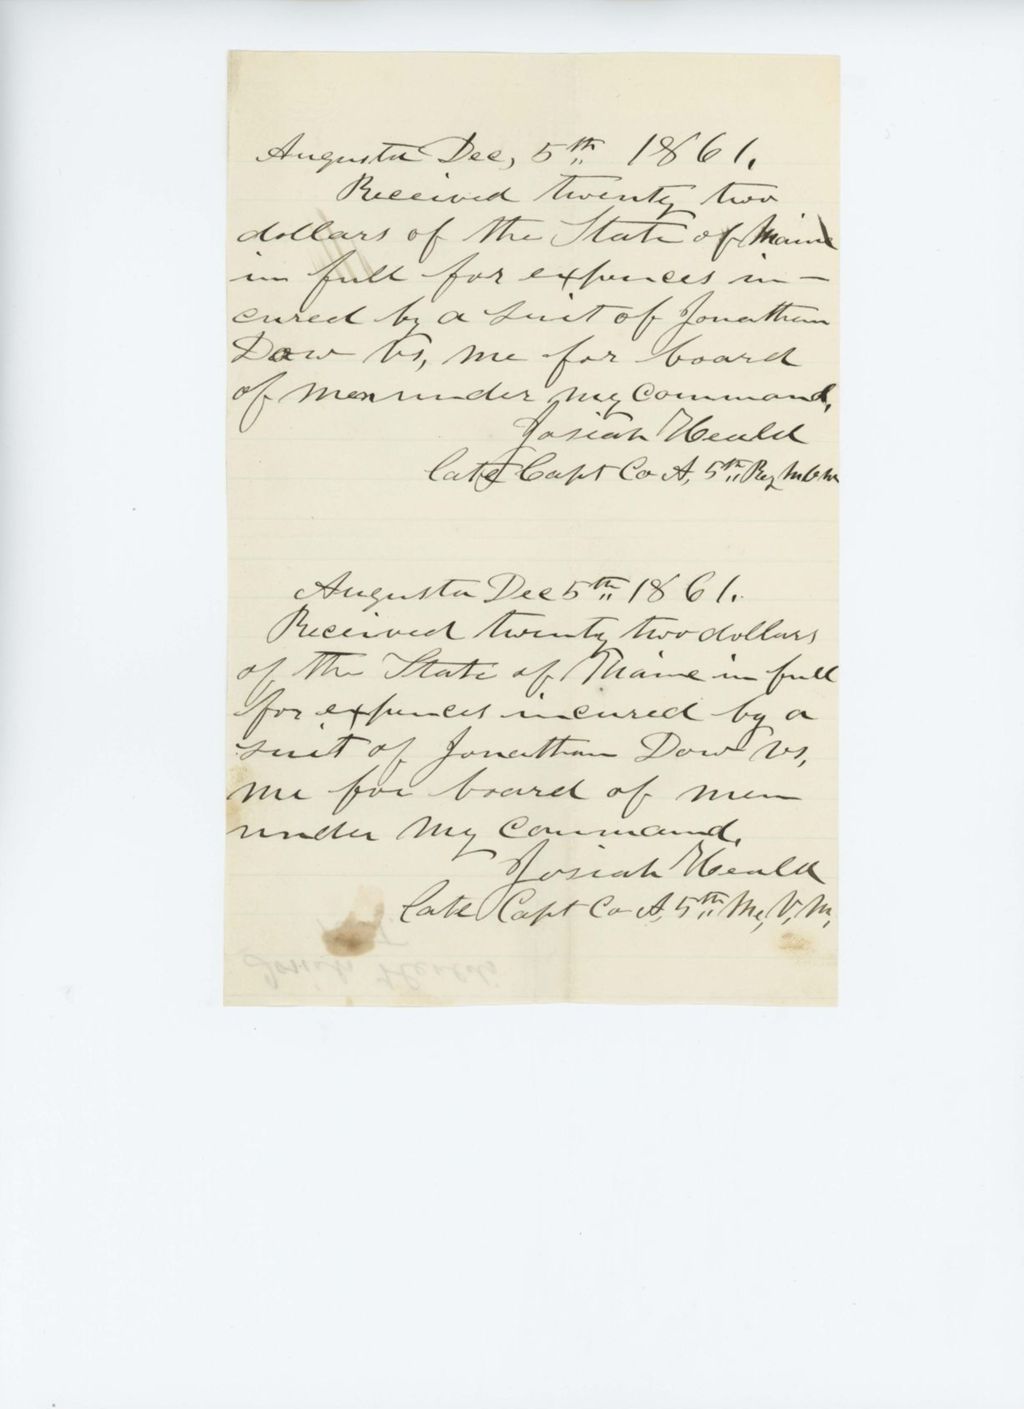 Augusta Dec, 5th 1861.
Received twenty two
dollars of the State of Maine
in full for expences in-
cured by a suit of Jonathan
Dow vs, me for board
of men under my command,
Josiah Heald
late Capt Co A, 5th Reg M.V.M
Augusta Dec 5th 1861.
Received twenty two dollars
of the State of Maine in full
for expences incured by a
suit of Jonathan Dow vs,
me for board of men
under my command,
Josiah Heald
late Capt Co A, 5th Me, V, M,